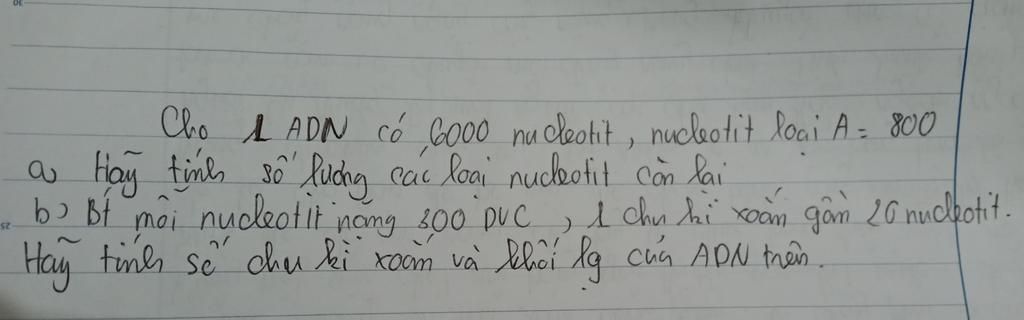 Cho 1 ADN có 6000 nucleotit, nucleotit loại A = 800
a) Hãy tính số lượng các loại nucleotit còn lại
b) Bt mỗi nucleotit nặng 300 DVC, 1 chu kì xoắn gồm 20 nucleotit.
Hãy tính số chu kì xoắn và khối lg của ADN trên.